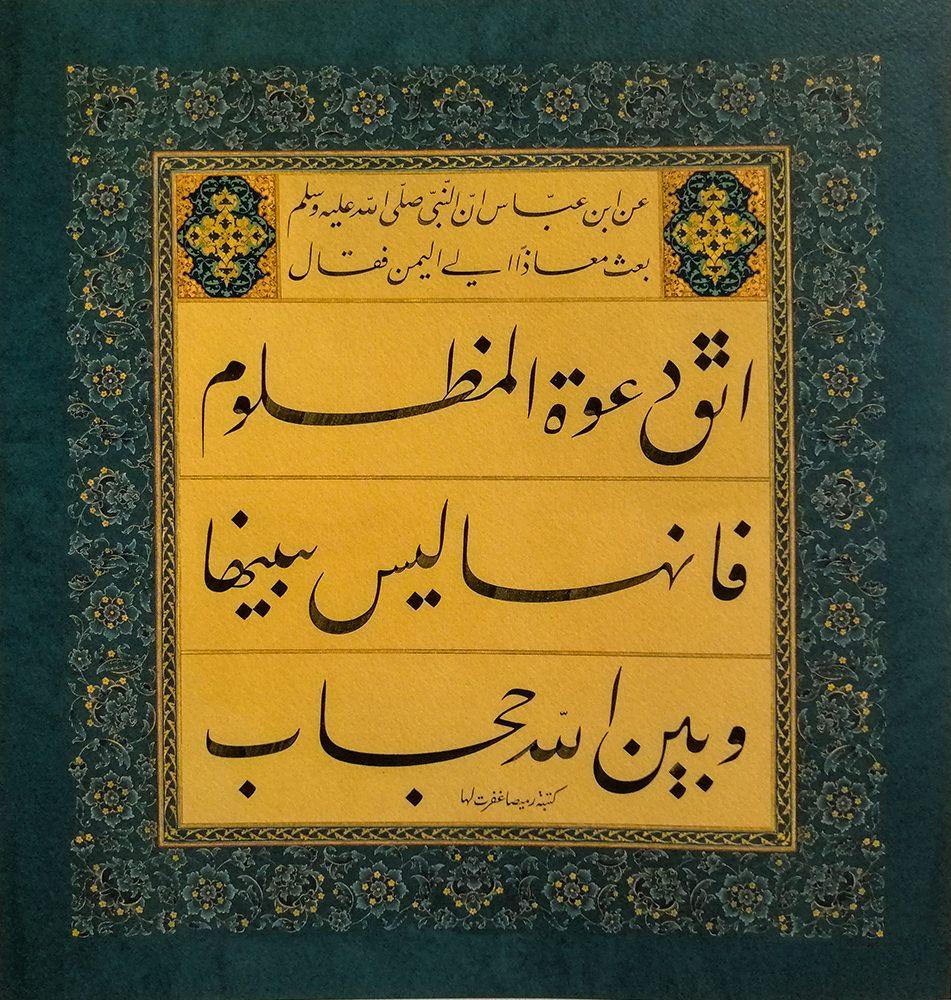 عن ابن عبّاس انّ النّبيّ صلّى اللّه عليه وسلم
بعث معاذاً الي اليمن فقال
اتق دعوة المظلوم
فانها ليس بينها
وبين اللّه حجاب
كتبته رميصا غفرت لها